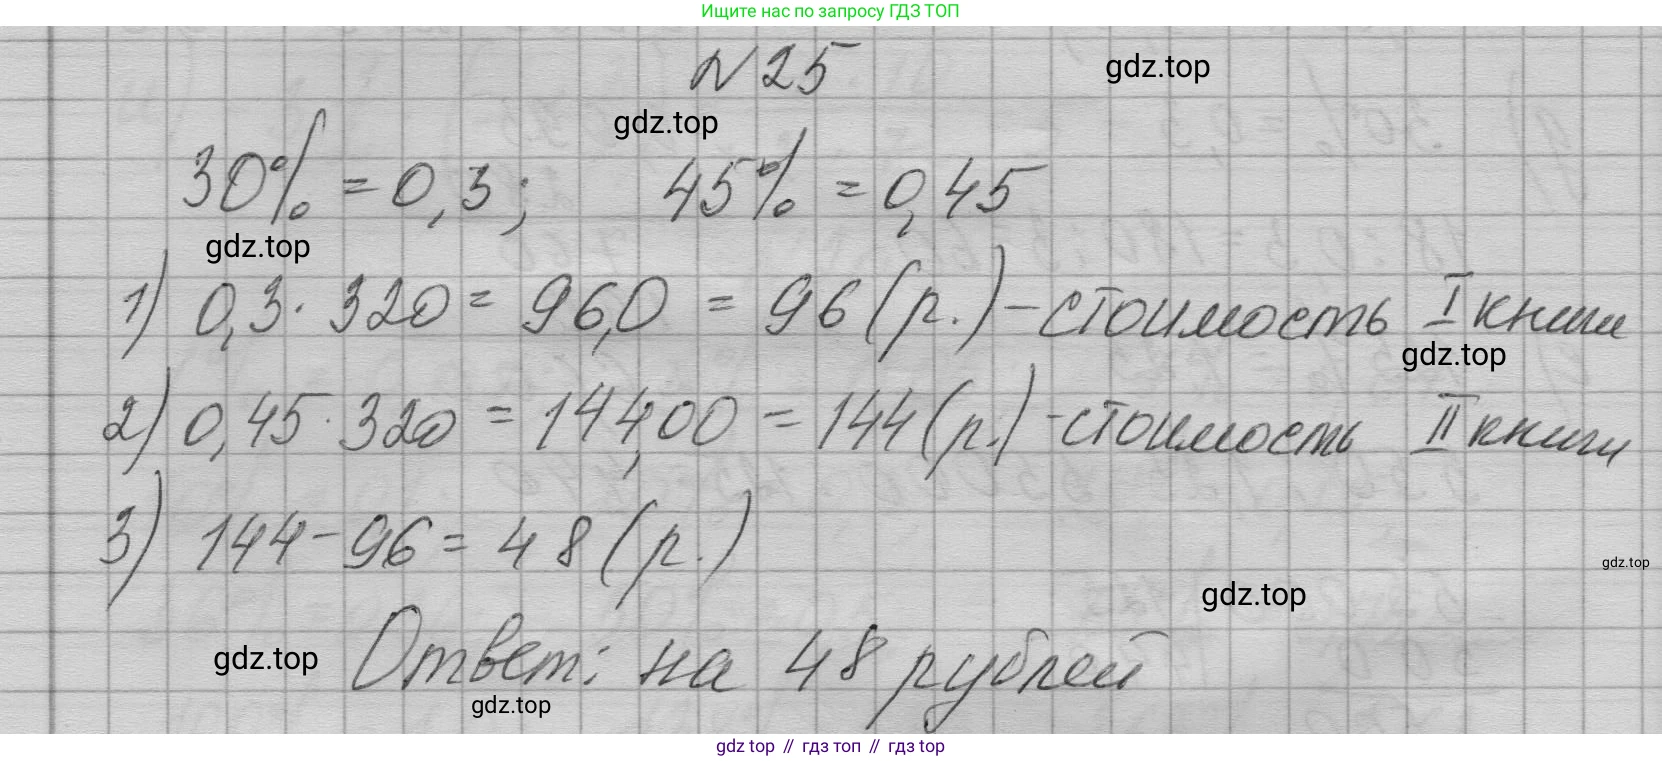 Ищите нас по запросу ГДЗ ТОП
№ 25
gdz.top
gdz.top
30% = 0,3; 45% = 0,45
gdz.top
1) 0,3 · 320 = 96,0 = 96 (р.) – стоимость I книги
gdz.top
2) 0,45 · 320 = 144,00 = 144 (р.) – стоимость II книги
3) 144 – 96 = 48 (р.)
gdz.top
gdz.top
Ответ: на 48 рублей
gdz.top
gdz.top
gdz top // гдз топ // гдз top